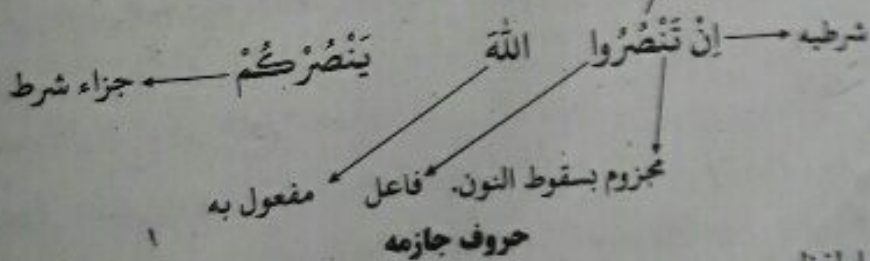 شرطیه اِنْ تَنْصُرُوا اللّٰهَ يَنْصُرْكُمْ جزاء شرط
مجزوم بسقوط النون. فاعل مفعول به
حروف جازمه ۱